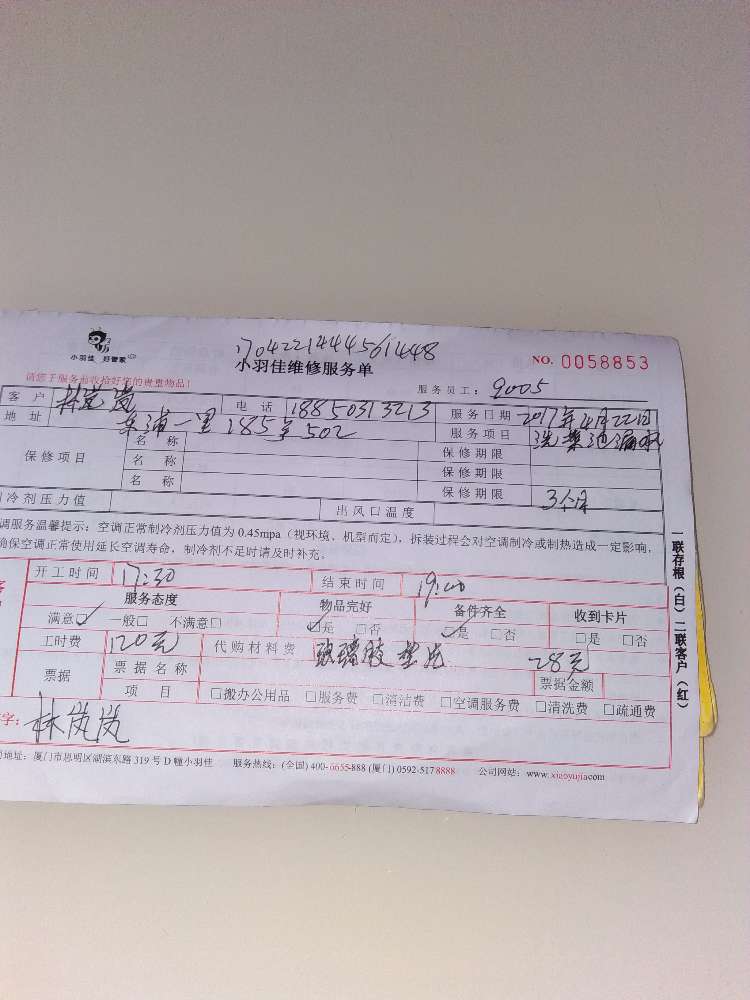 1704221444561448
小羽佳 好管家
小羽佳维修服务单
NO. 0058853
请您于服务前收拾好您的贵重物品!
服务员工: 9005
客 户 林岚岚 电 话 18850313213 服务日期 2017年4月22日
地 址 东浦一里185号502 服务项目 洗菜池漏水
保修项目 名 称 保修期限
名 称 保修期限
名 称 保修期限 3个月
冷剂压力值 出风口温度
调服务温馨提示: 空调正常制冷剂压力值为 0.45mpa (视环境、机型而定), 拆装过程会对空调制冷或制热造成一定影响,
确保空调正常使用延长空调寿命, 制冷剂不足时请及时补充。
开工时间 17:30 结束时间 19:00
服务态度 物品完好 备件齐全 收到卡片
满意☑ 一般□ 不满意□ ☑是 □否 ☑是 □否 □是 □否
工时费 120元 代购材料费 玻璃胶 垫片 28元
票据 票据名称 票据金额
项 目 □搬办公用品 □服务费 □清洁费 □空调服务费 □清洗费 □疏通费
字: 林岚岚
地址: 厦门市思明区湖滨东路 319 号 D 幢小羽佳 服务热线: (全国) 400-6655-888 (厦门) 0592-5178888 公司网站: www.xiaoyujia.com
一联存根(白) 二联客户(红)